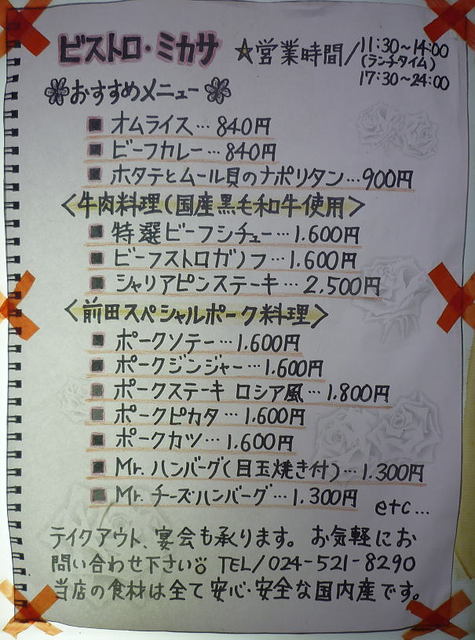 ビストロ・ミカサ ☆営業時間/11:30~14:00
(ランチタイム)
17:30~24:00
おすすめメニュー
■ オムライス…840円
■ ビーフカレー…840円
■ ホタテとムール貝のナポリタン…900円
<牛肉料理(国産黒毛和牛使用>
■ 特選ビーフシチュー…1.600円
■ ビーフストロガノフ…1.600円
■ シャリアピンステーキ…2.500円
<前田スペシャルポーク料理>
■ ポークソテー…1.600円
■ ポークジンジャー…1.600円
■ ポークステーキ ロシア風…1.800円
■ ポークピカタ…1.600円
■ ポークカツ…1.600円
■ Mr.ハンバーグ(目玉焼き付)…1.300円
■ Mr.チーズハンバーグ…1.300円
etc...
テイクアウト、宴会も承ります。お気軽にお
問い合わせ下さい TEL/024-521-8290
当店の食材は全て安心・安全な国内産です。